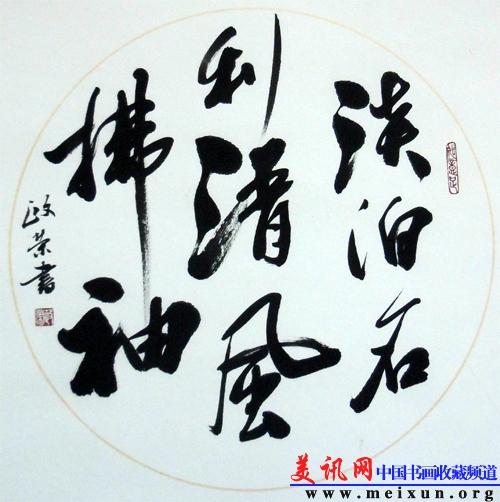 淡泊名
利清風
拂袖
政荣書
美讯网 中国书画收藏频道
www.meixun.org